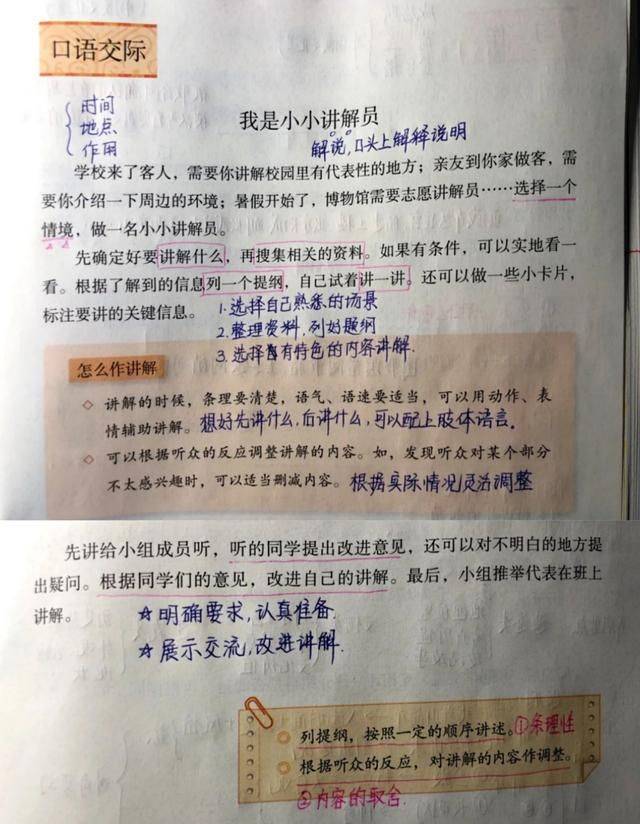 口语交际
时间
地点
作用
我是小小讲解员
解说,口头上解释说明
学校来了客人，需要你讲解校园里有代表性的地方；亲友到你家做客，需
要你介绍一下周边的环境；暑假开始了，博物馆需要志愿讲解员……选择一个
情境，做一名小小讲解员。
先确定好要讲解什么，再搜集相关的资料。如果有条件，可以实地看一
看。根据了解到的信息列一个提纲，自己试着讲一讲。还可以做一些小卡片，
标注要讲的关键信息。
1.选择自己熟悉的场景
2.整理资料,列好题纲
3.选择有特色的内容讲解.
怎么作讲解
◇ 讲解的时候，条理要清楚，语气、语速要适当，可以用动作、表
情辅助讲解。想好先讲什么,后讲什么,可以配上肢体语言.
◇ 可以根据听众的反应调整讲解的内容。如，发现听众对某个部分
不太感兴趣时，可以适当删减内容。根据实际情况灵活调整
先讲给小组成员听，听的同学提出改进意见，还可以对不明白的地方提
出疑问。根据同学们的意见，改进自己的讲解。最后，小组推举代表在班上
讲解。
☆明确要求,认真准备.
☆展示交流,改进讲解.
列提纲，按照一定的顺序讲述。①条理性
根据听众的反应，对讲解的内容作调整。
②内容的取舍.